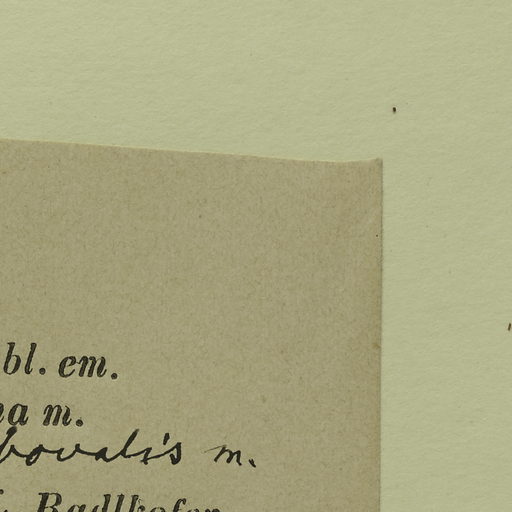 bl. em.
na m.
bovalis m.
Radlkofer